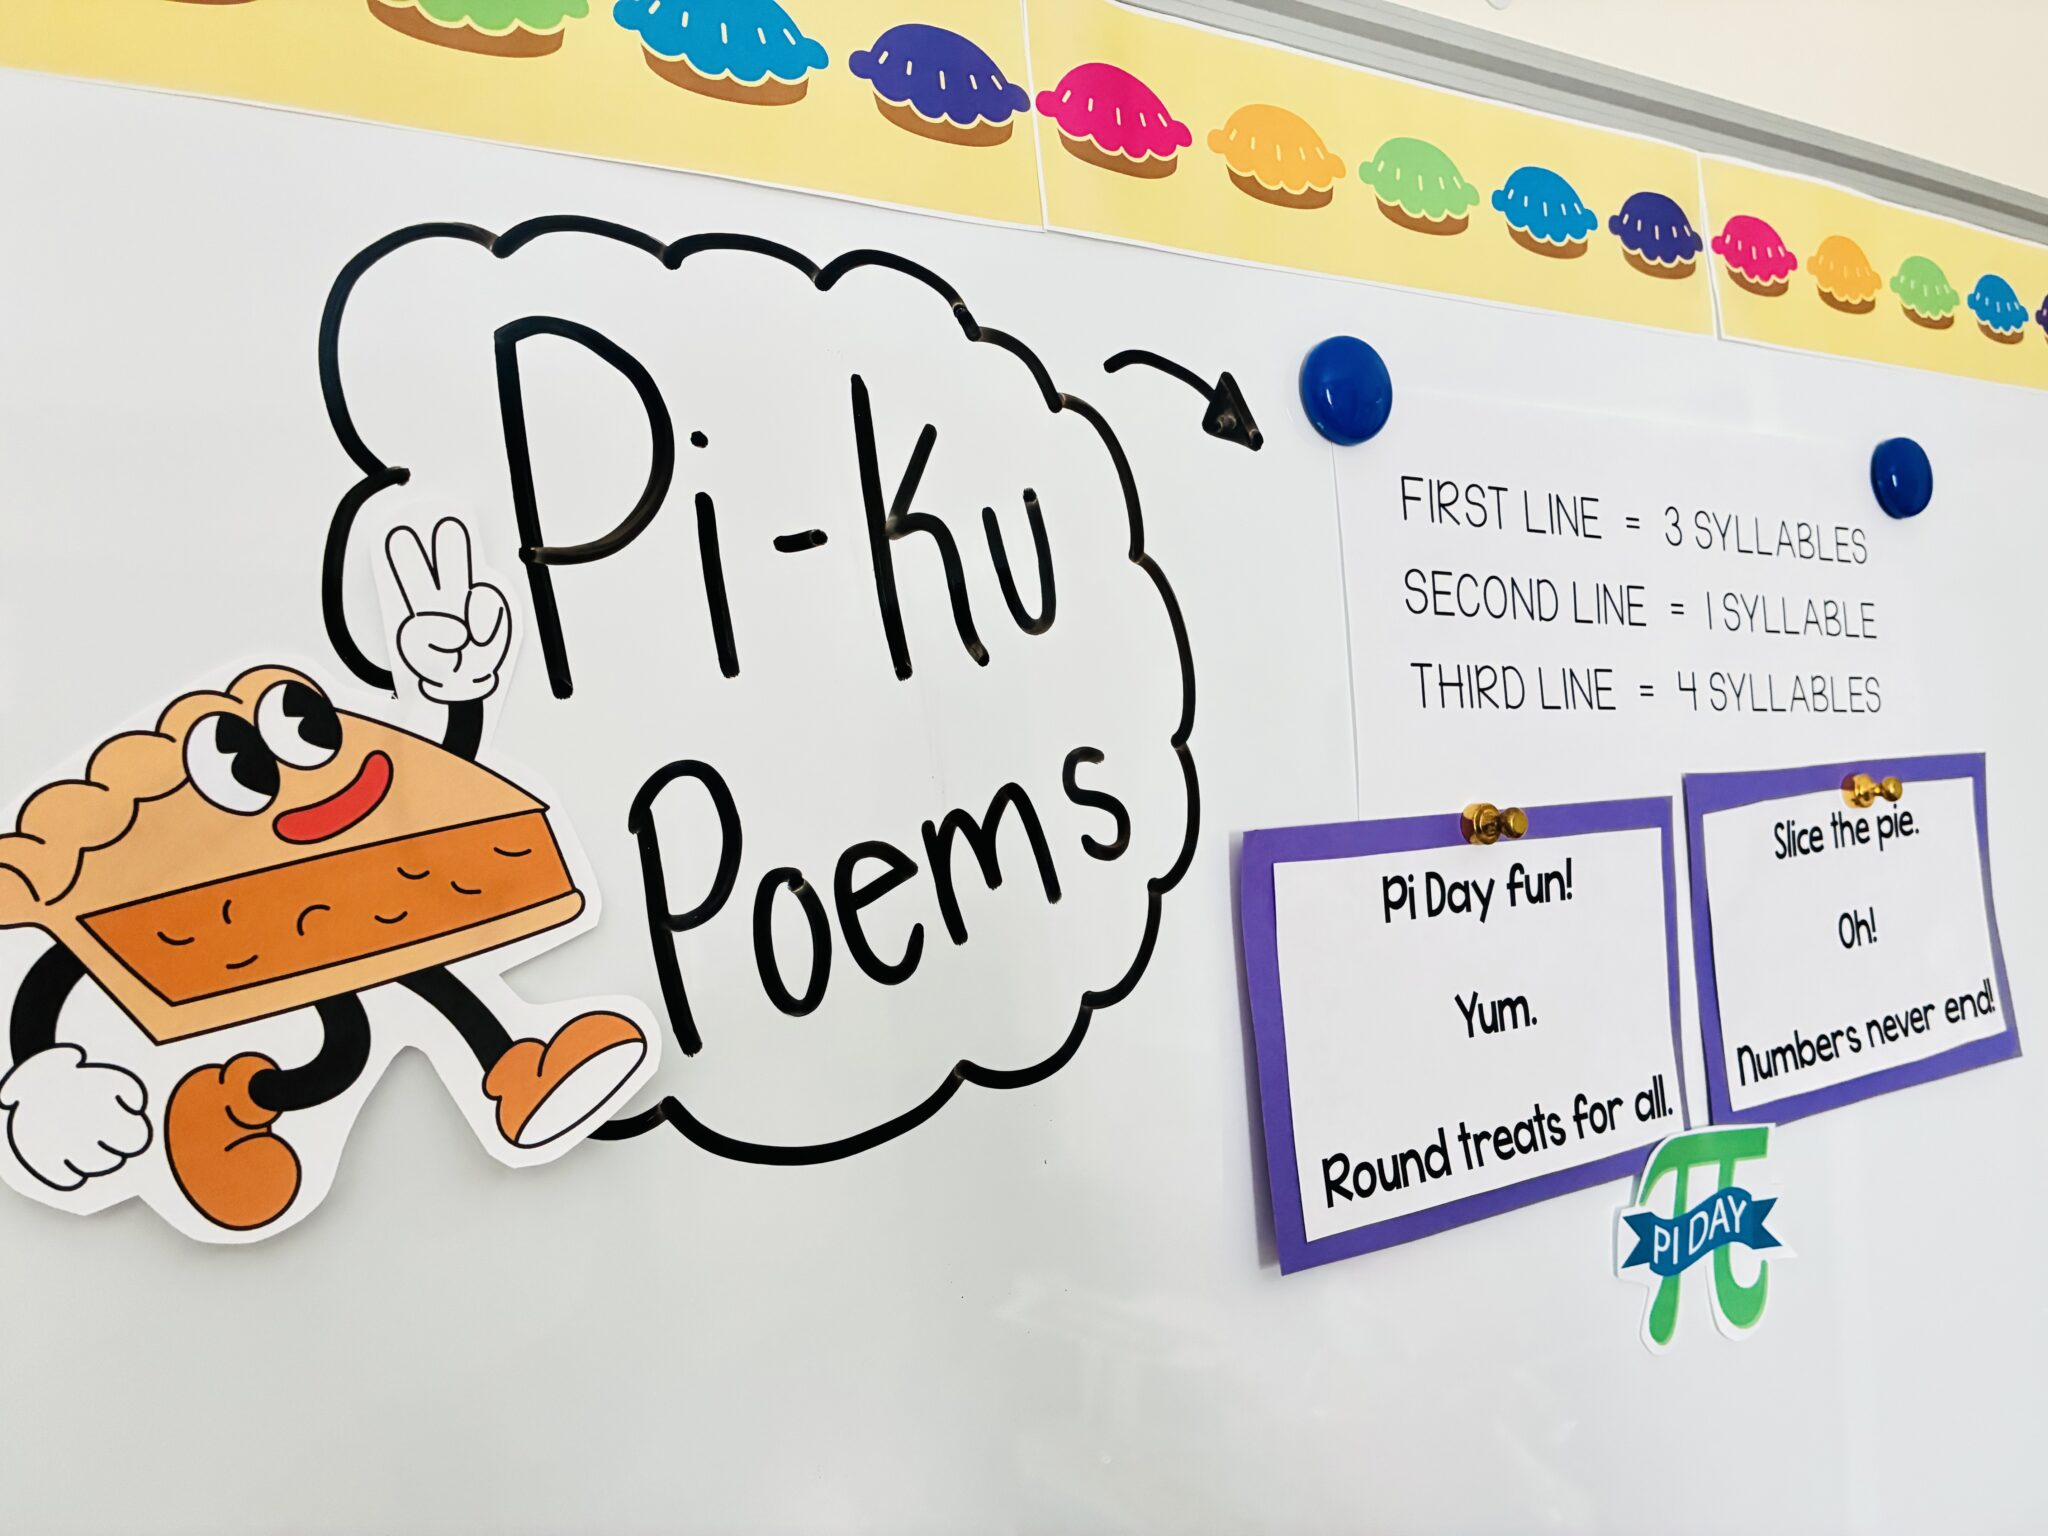 Pi-Ku
Poems
FIRST LINE = 3 SYLLABLES
SECOND LINE = 1 SYLLABLE
THIRD LINE = 4 SYLLABLES
Pi Day fun!
Yum.
Round treats for all.
Slice the pie.
Oh!
Numbers never end!
π
PI DAY